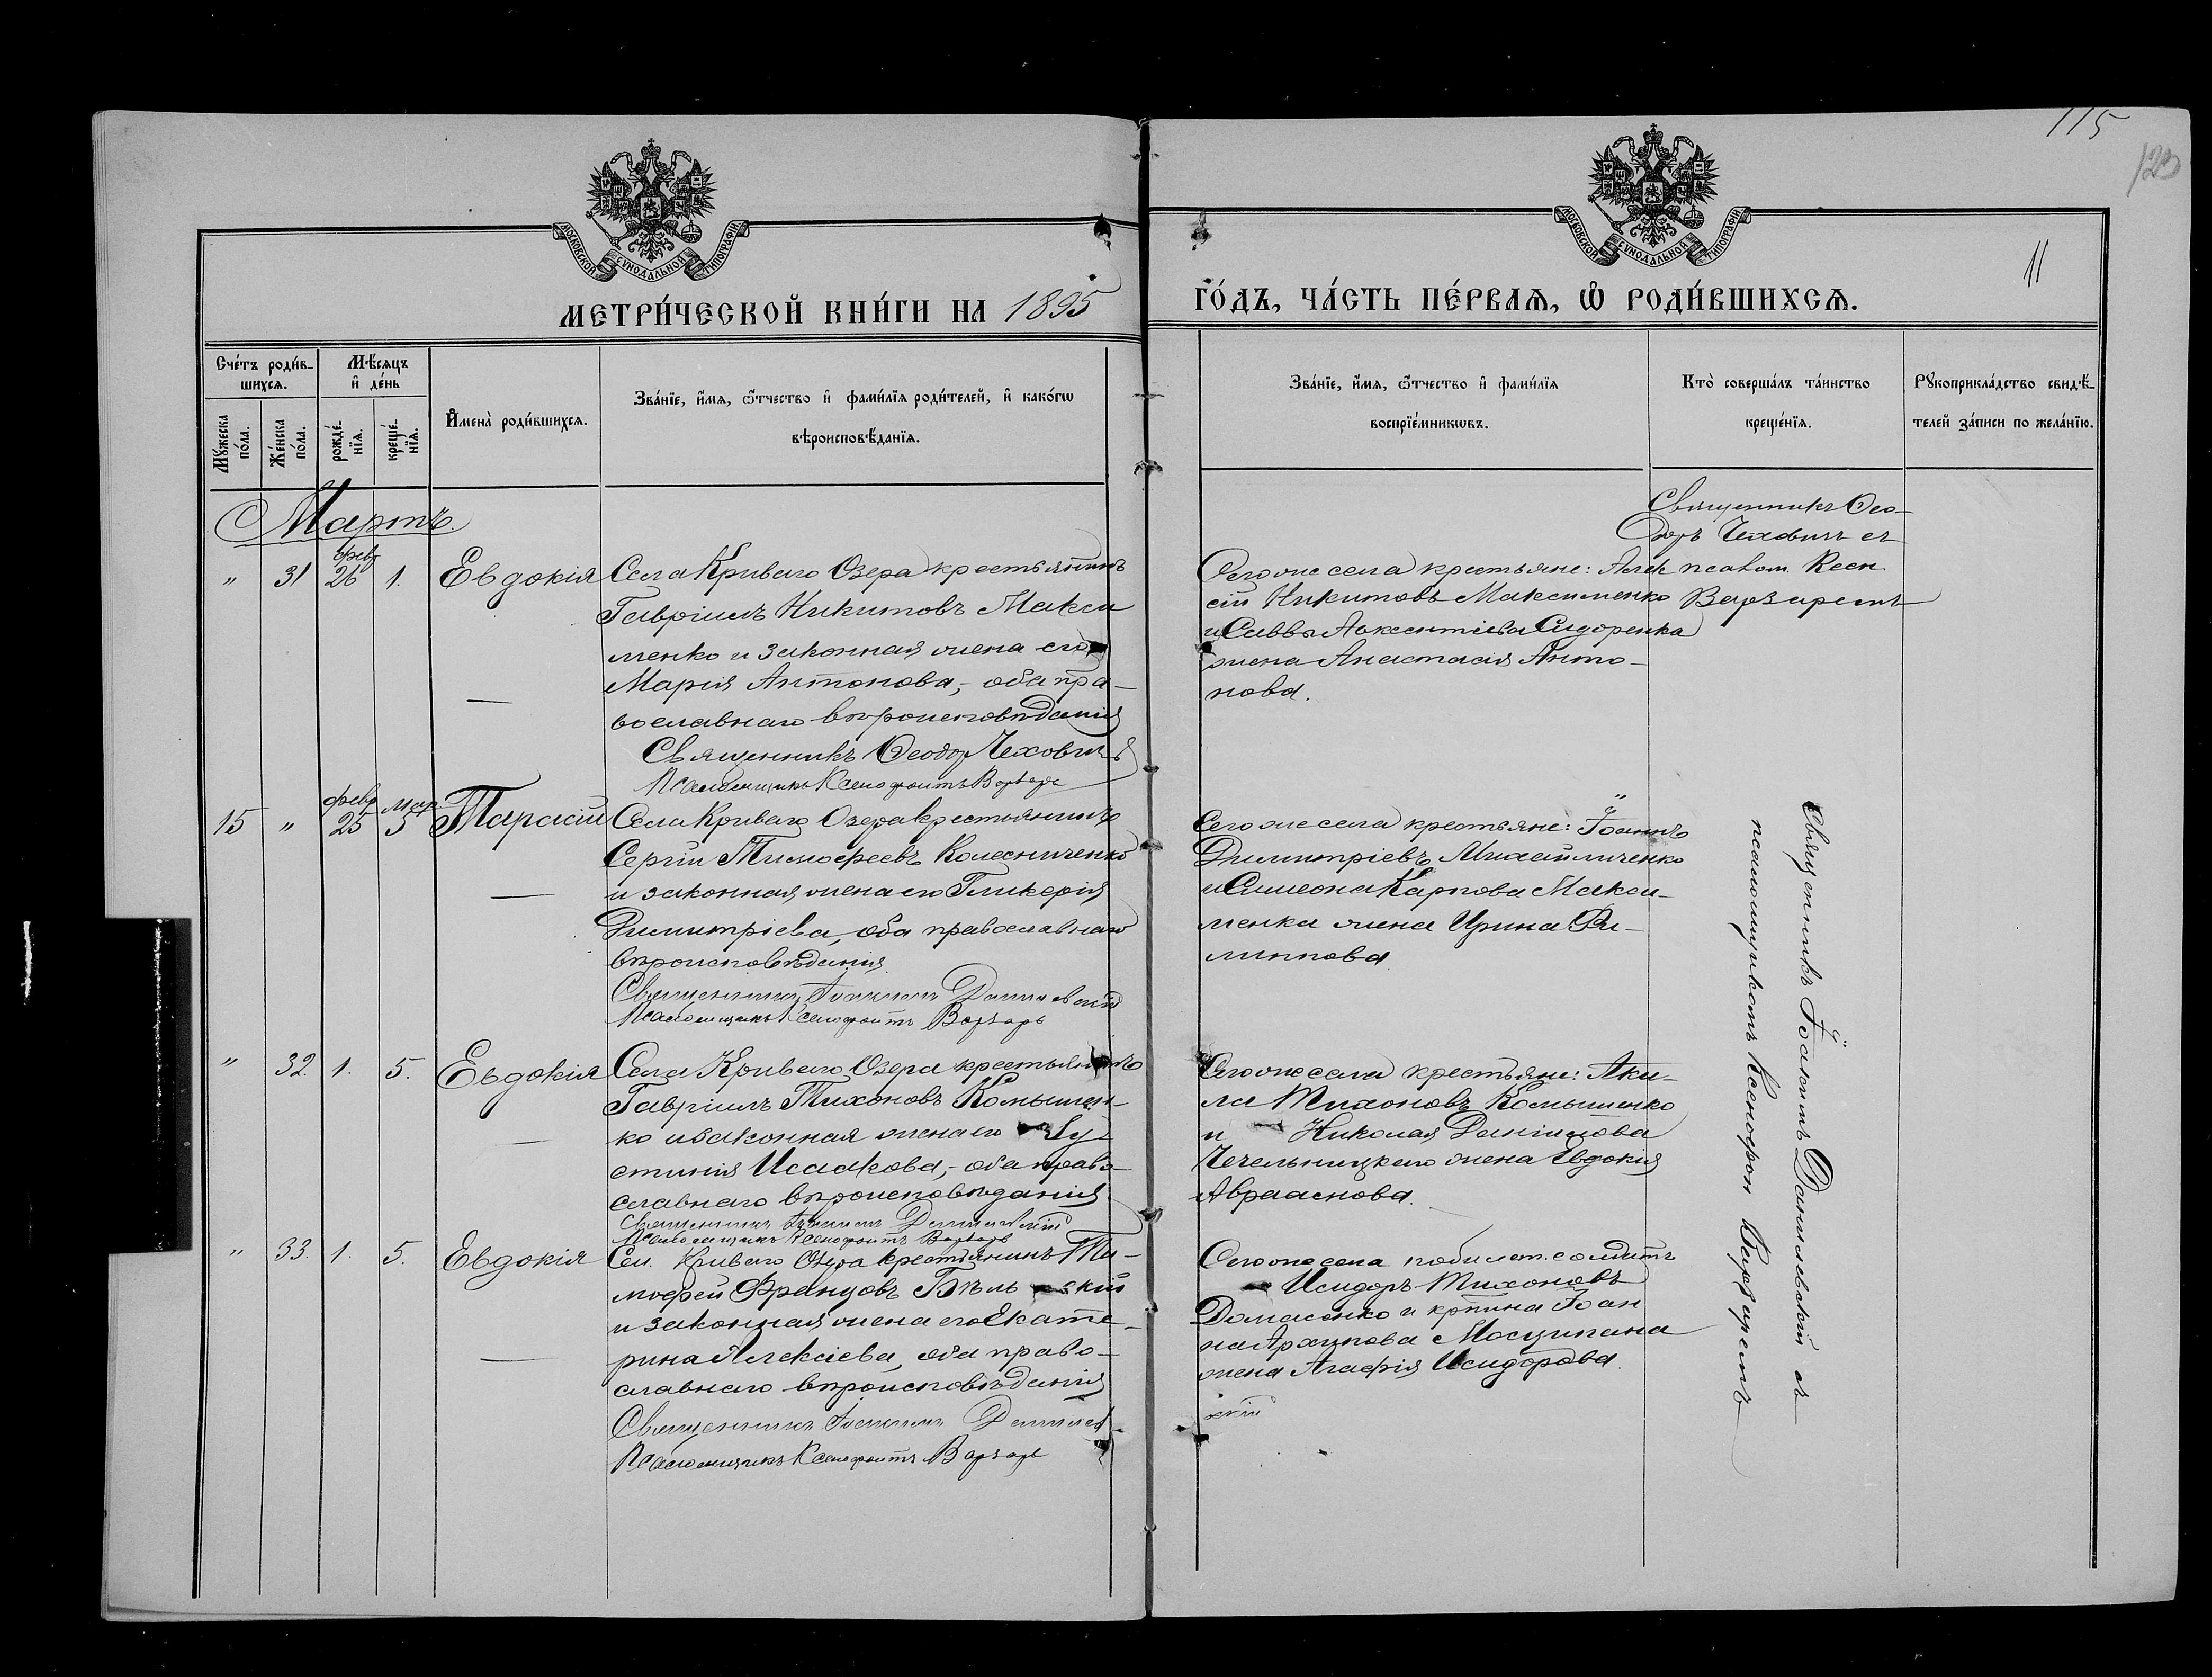 115
123
11
МОСКОВСКОЙ СУНОДАЛЬНОЙ ТИПОГРАФІИ
МОСКОВСКОЙ СУНОДАЛЬНОЙ ТИПОГРАФІИ
МЕТРИ́ЧЕСКОЙ КНИ́ГИ НА 1895
ГО́ДЪ, ЧА́СТЬ ПЕ́РВАѦ, Ѡ РОДИ́ВШИХСѦ.
Сче́тъ роди́в-
шихсѧ.
Мꙋ́жеска
по́ла.
Же́нска
по́ла.
Мѣ́сѧцъ
и де́нь
рожде́-
нїѧ.
креще́-
нїѧ.
Имена̀ роди́вшихсѧ.
Зва́нїе, и́мѧ, ѻ́тчество и фами́лїѧ роди́телей, и како́гѡ
вѣроисповѣ́данїѧ.
Зва́нїе, и́мѧ, ѻ́тчество и фами́лїѧ
воспрїе́мникѡвъ.
Кто̀ соверша́лъ та́инство
креще́нїѧ.
Рꙋкоприкла́дство свидѣ́-
телей за́писи по жела́нїю.
Мартъ.
" 31 февр 26 1. Евдокія
Села Криваго Озера крестьянинъ
Гавріилъ Никитовъ Макси
менко и законная жена его
Марія Антонова,- оба пра-
вославнаго вѣроисповѣданія
Священникъ Ѳеодор Чеховичъ
Псаломщикъ Ксенофонтъ Варзарь
Сего же села крестьяне: Алек
сій Никитовъ Максименко
и Саввы Авксентіева Сидоренка
жена Анастасія Анто-
нова.
Священникъ Ѳео-
доръ Чеховичъ съ
псалом. Ксен.
Варзаремъ
15 " февр 25 мар 5 Тарасій
Села Криваго Озера крестьянинъ
Сергій Тимофеевъ Колесниченко
и законная жена его Гликерія
Димитріева, оба православнаго
вѣроисповѣданія
Священникъ Іоакимъ Данилевскій
Псаломщикъ Ксенофонтъ Варзарь
Сего же села крестьяне: Іоаннъ
Димитріевъ Михайличенко
и Симеона Карпова Макси-
менка жена Ирина Фи-
липпова
Священникъ Іоакимъ Данилевскій съ
псаломщикомъ Ксенофон Варзаремъ
" 32. 1. 5. Евдокія
Села Криваго Озера крестьянинъ
Гавріилъ Тихоновъ Комышен-
ко и законная жена его Іу-
стинія Исаакова,- оба право-
славнаго вѣроисповѣданія
Священникъ Іоакимъ Данилевскій
Псаломщикъ Ксенофонтъ Варзарь
Сего же села крестьяне: Аки-
ла Тихоновъ Комышенко
и Николая Даніилова
Чечельницкаго жена Евдокія
Авраамова.
" 33. 1. 5. Евдокія
Сел. Криваго Озера крестьянинъ Ти-
мофей Францовъ Бѣль скій
и законная жена его Екате-
рина Алексіева, оба право-
славнаго вѣроисповѣданія
Священникъ Іоакимъ Данилев
скій
Псаломщикъ Ксенофонтъ Варзарь
Сего же села побилет. солдатъ
Исидоръ Тихоновъ
Домасенко и крпина Іоан
на Архипова Мосципана
жена Агафія Исидорова.